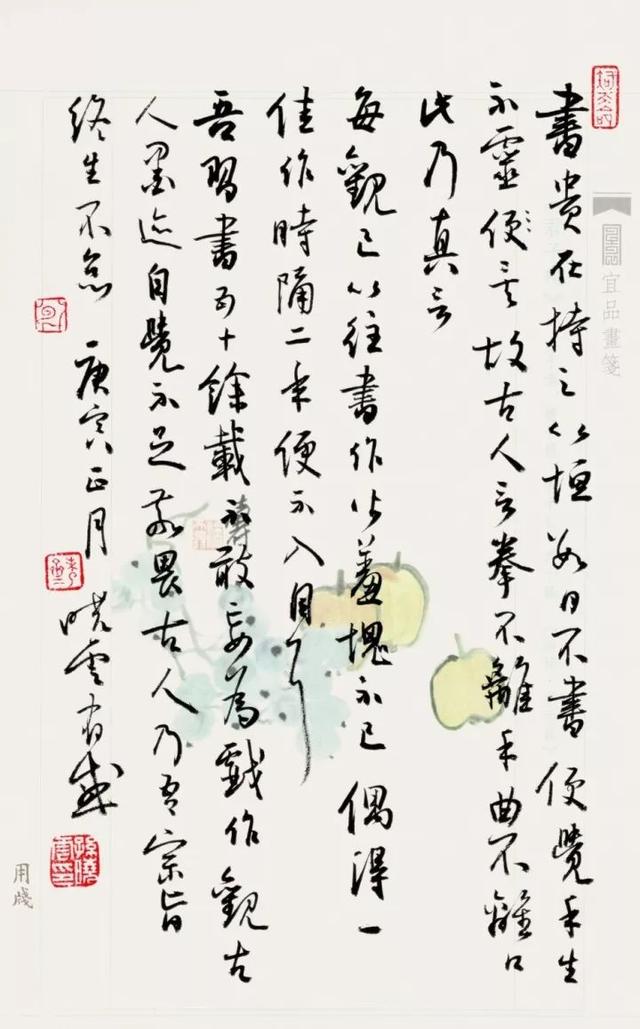 書貴在持之以恒數日不書便覺手生
不靈便矣故古人言拳不離手曲不離口
此乃真言
每觀已以往書作皆羞愧不已偶得一
佳作時隔二年便不入目了
吾習書五十餘載不敢妄為戲作觀古
人墨迹自覺不足敬畏古人乃吾宗旨
終生不怠 庚寅正月 曉雲有感
宜品畫箋
用牋